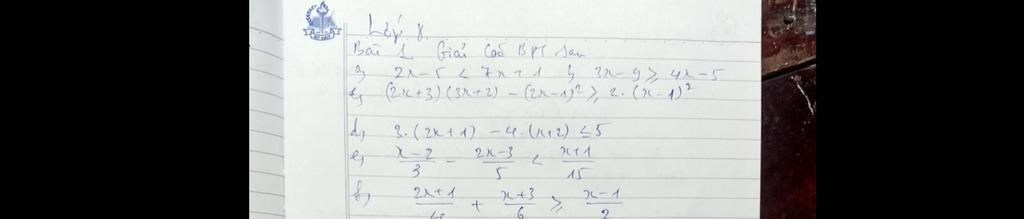 Lớp 8.
Bài 1 Giải các BPT sau
a, 2x-5 < 7x+1 b, 3x-9 ≥ 4x-5
c, (2x+3)(3x+2) - (2x-1)² ≥ 2.(x-1)²
d, 3.(2x+1) - 4.(x+2) ≤ 5
e, (x-2)/3 - (2x-3)/5 < (x+1)/15
f, (2x+1)/4 + (x+3)/6 ≥ (x-1)/2